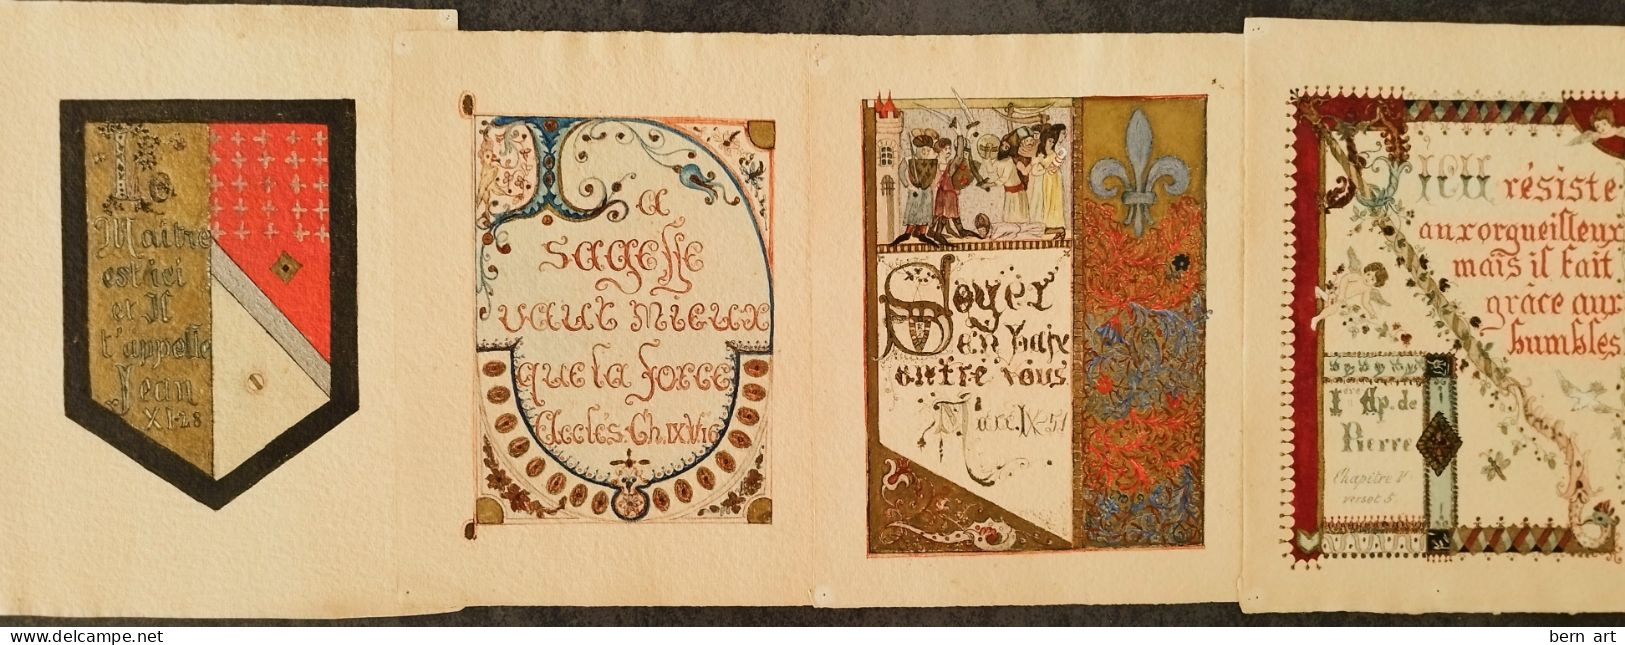 Le
Maitre
est ici
et Il
t'appelle
Jean
XI-28
La
sagesse
vaut mieux
que la force
Eccles. Ch. IX V 16
Soyez
en paix
entre vous
Marc. IX-51
DIEU résiste
aux orgueilleux
mais il fait
grâce aux
humbles
I ère Ap. de
Pierre
Chapitre V
verset 5
DELCAMPE.NET
bern art